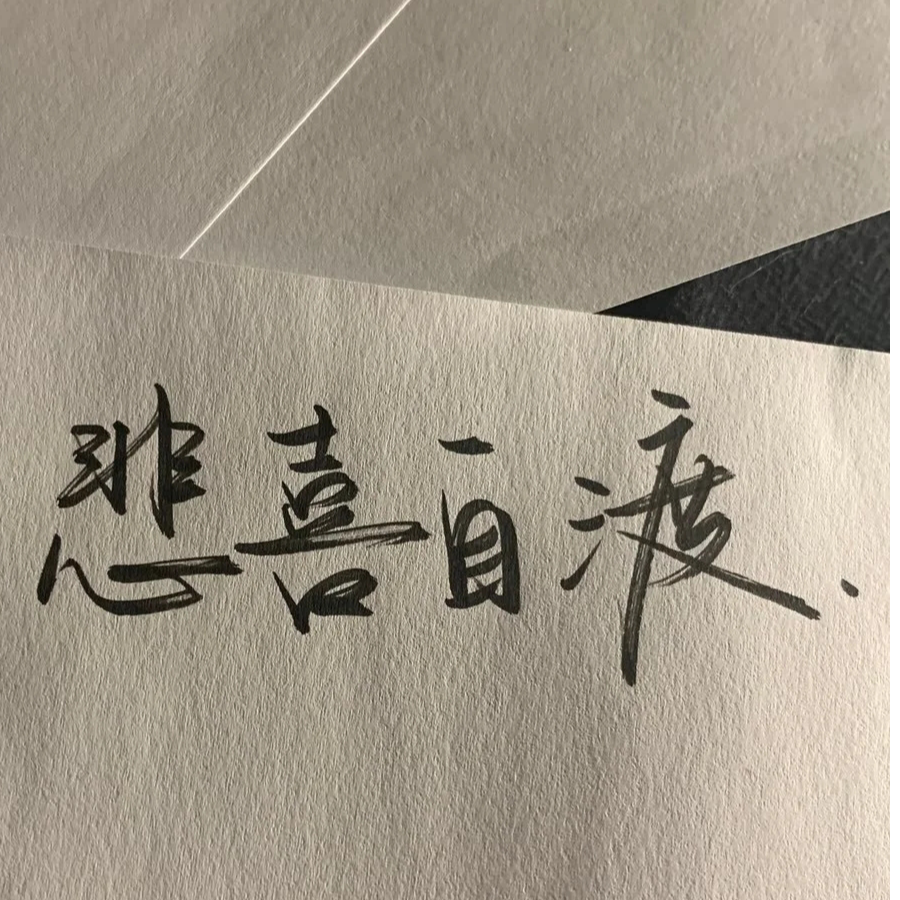 悲喜自渡.